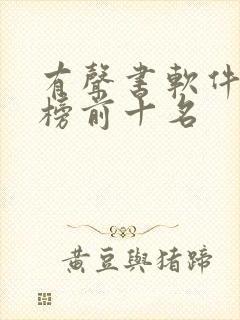 有聲書軟件
榜前十名
黃豆與猪蹄